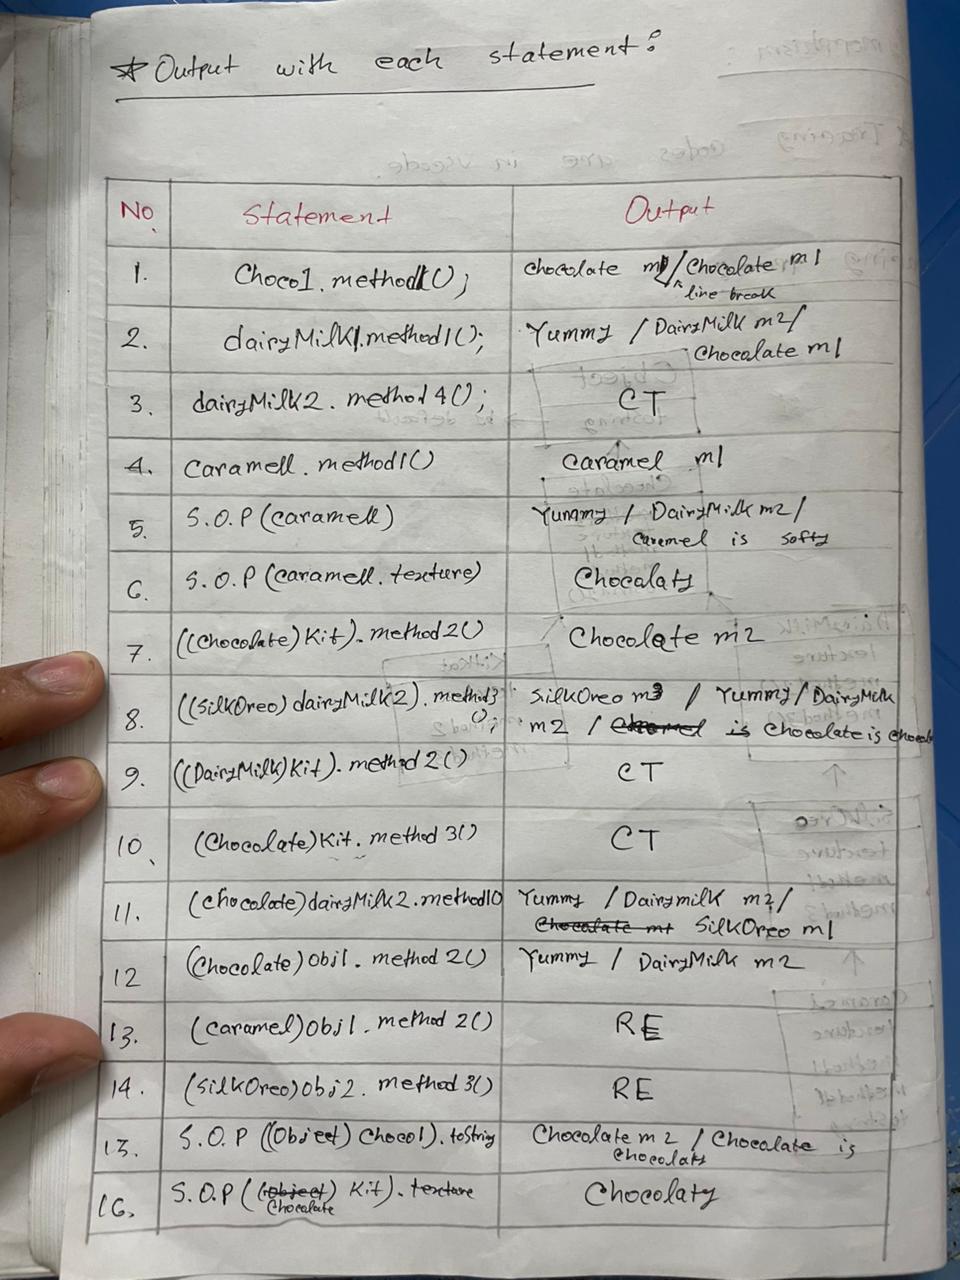 * Output with each statement:
No. Statement Output
1. Choco1.method1(); Chocolate m1/Chocolate m1
line break
2. dairyMilk1.method1(); Yummy / DairyMilk m2/
Chocalate m1
3. dairyMilk2.method4(); CT
4. Caramel1.method1() Caramel m1
5. S.O.P(caramel1) Yummy / DairyMilk m2/
Caremel is softy
6. S.O.P(caramel1.texture) Chocalaty
7. ((Chocolate)Kit).method2() Chocolate m2
8. ((SilkOreo)dairyMilk2).method3 SilkOreo m3 / Yummy/DairyMilk
(); m2 / is Chocolate is
9. ((DairyMilk)Kit).method2() CT
10. (Chocolate)Kit.method3() CT
11. (Chocolate)dairyMilk2.method1() Yummy / Dairymilk m2/
Chocalate m1 SilkOreo m1
12 (Chocolate)Obj1.method2() Yummy / DairyMilk m2
13. (Caramel)Obj1.method2() RE
14. (SilkOreo)Obj2.method3() RE
15. S.O.P((Object)Choco1).toString Chocolate m2 / Chocalate is
Chocolaty
16. S.O.P((Object) Kit).texture Chocolaty
Chocolate